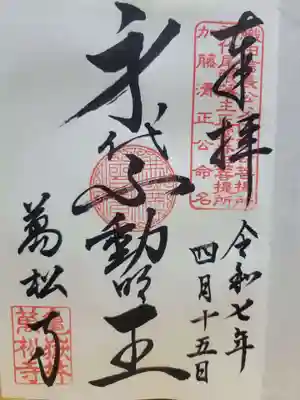 奉拝
織田信長公
加藤清正公命名
身代不動明王
令和七年
四月十五日
萬松寺
萬松寺